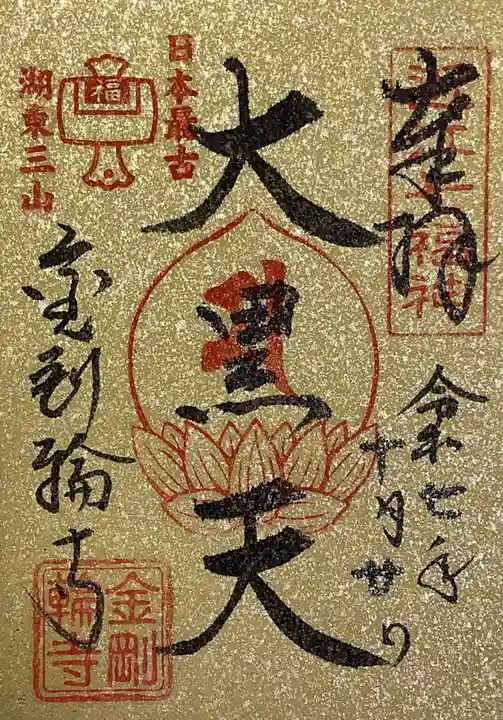 奉拝
令和七年
十月廿日
大黒天
日本最古
湖東三山
福
金剛輪寺
金剛
輪寺